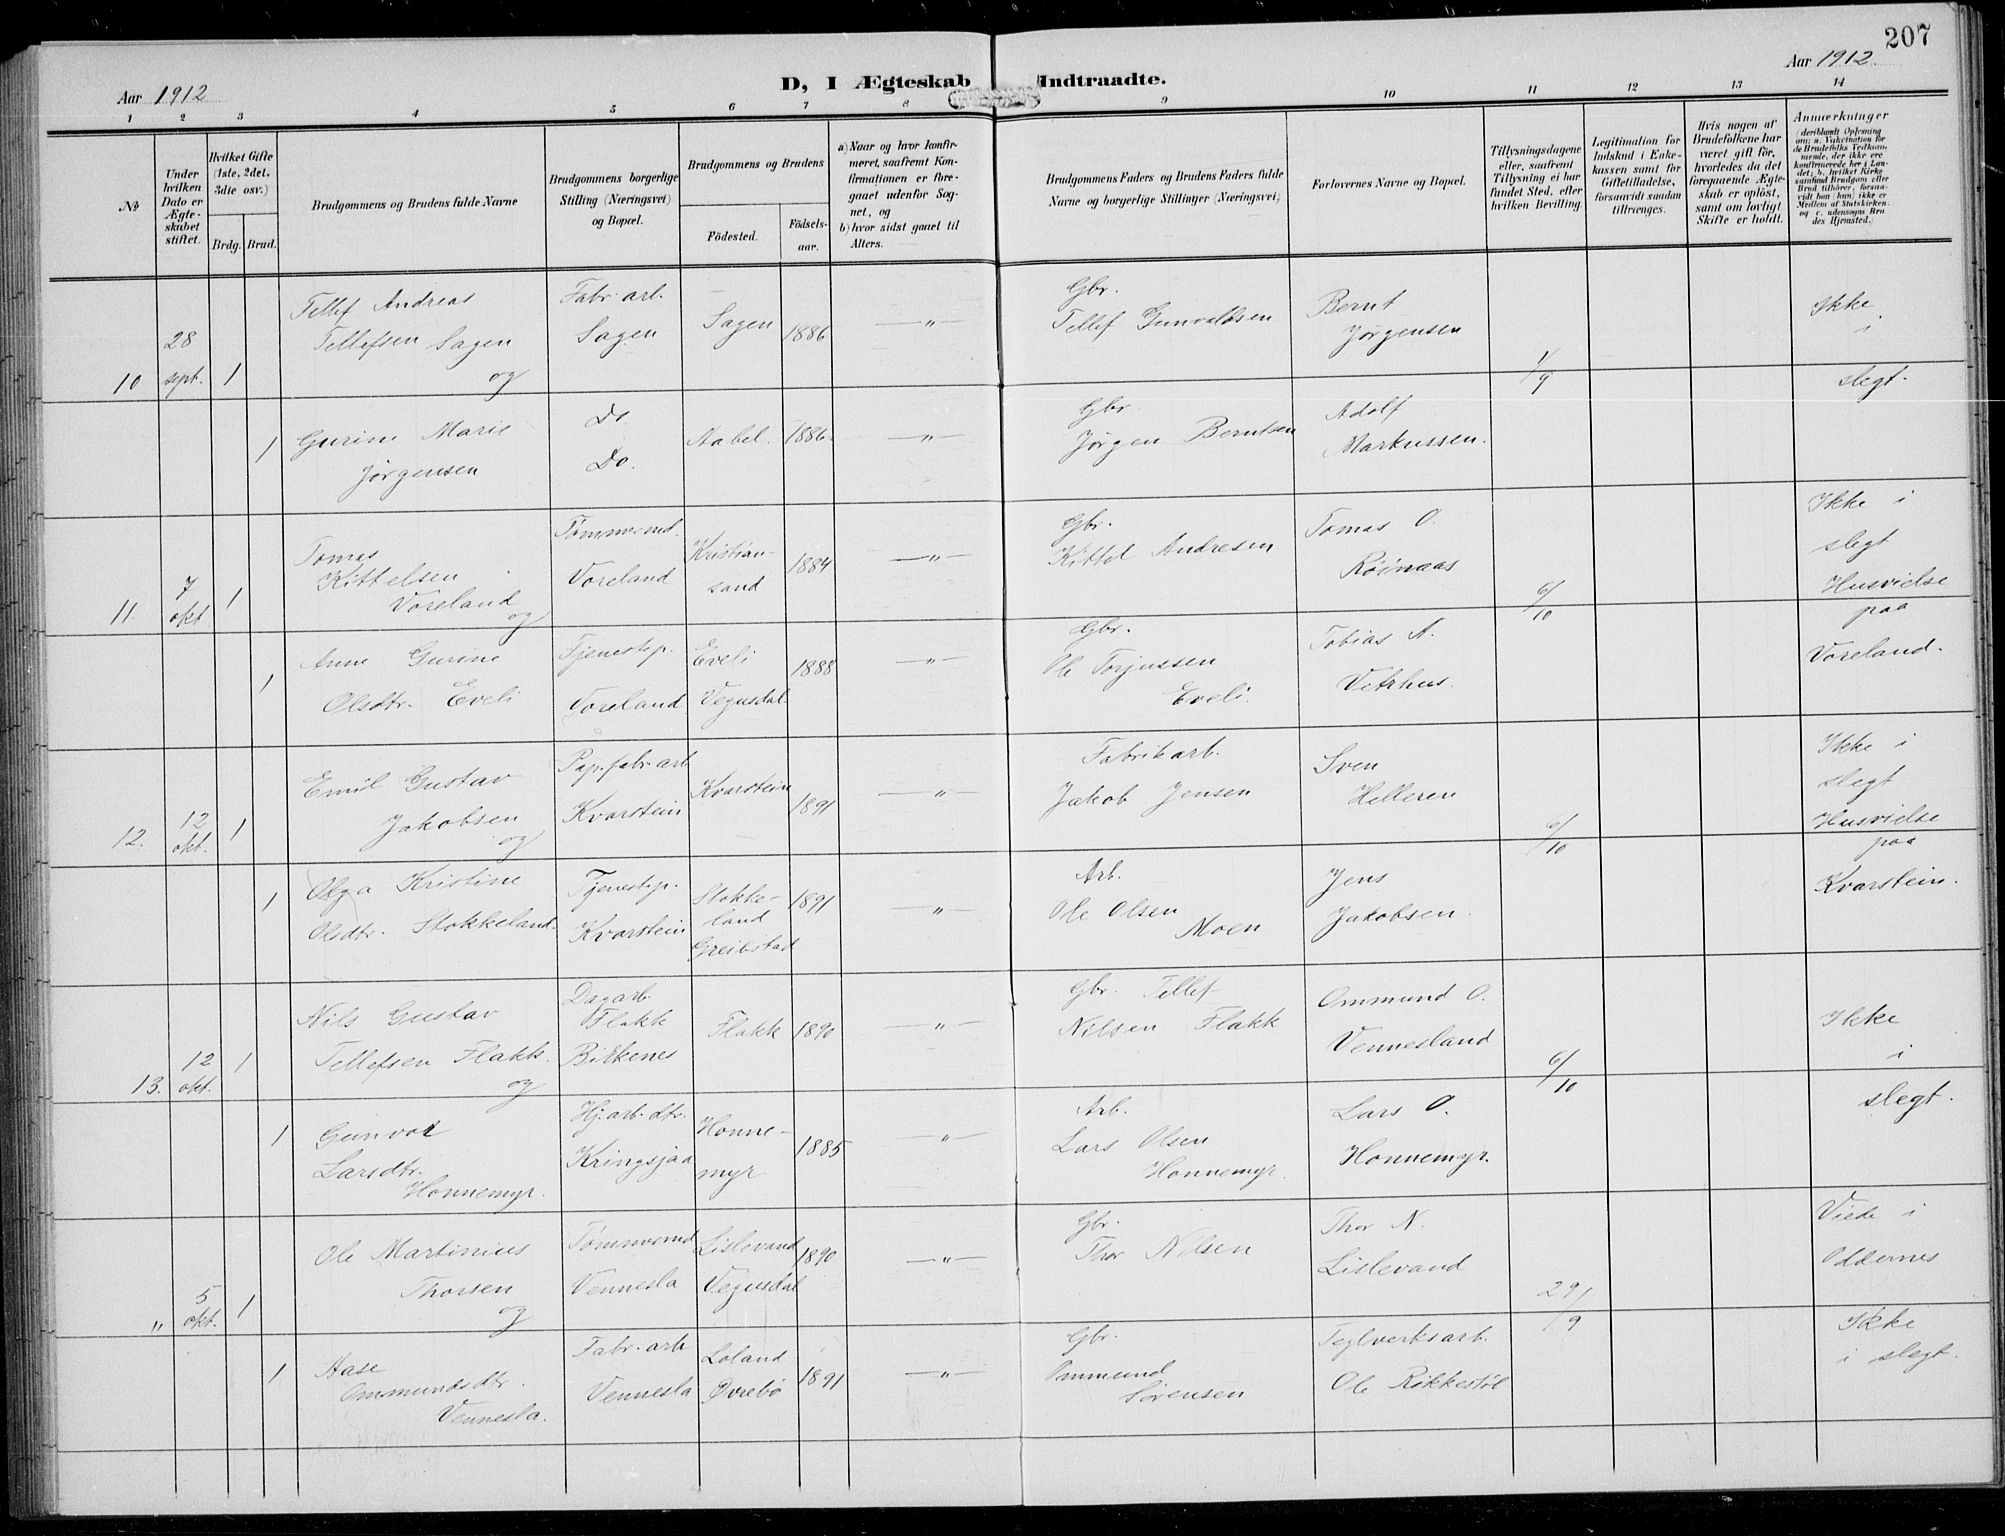 207
Aar 1912
D, I Ægteskab Indtraadte.
Aar 1912
1 2 3 4 5 6 7 8 9 10 11 12 13 14
No
Under hvilken Dato er Ægteskabet stiftet.
Hvilket Gifte (1ste, 2det, 3die osv.)
Brdg. Brud.
Brudgommens og Brudens fulde Navne
Brudgommens borgerlige Stilling (Næringsvei) og Bopæl.
Brudgommens og Brudens
Fødested.
Fødselsaar.
a) Naar og hvor konfirmeret, saafremt Konfirmationen er foregaaet udenfor Sognet, og
b) hvor sidst gaaet til Alters.
Brudgommens Faders og Brudens Faders fulde Navne og borgerlige Stillinger (Næringsvei)
Forlovernes Navne og Bopæl.
Tillysningsdagene eller, saafremt Tillysning ei har fundet Sted, efter hvilken Bevilling.
Legitimation for Indskud i Enkekassen samt for Giftetilladelse, forsaavidt saadan tiltrænges.
Hvis nogen af Brudefolkene har været gift før, hvorledes da det foregaaende Ægteskab er opløst, samt om lovligt Skifte er holdt.
Anmerkninger
(deriblandt Oplysning om: a. Vakcination for de Brudefolks Vedkommende, der ikke ere konfirmerede her i Landet; b. hvilket Kirkesamfund Brudgom eller Brud tilhører, forsaavidt han (hun) ikke er Medlem af Statskirken og c. udensogns Brudes Hjemsted.)
10 28 sept. 1
Tellef Andreas
Tellefsen Sagen
og
Fabr. arb.
Sagen
Sagen 1886 — " —
Gbr.
Tellef Gunvaldsen
Bernt
Jørgensen
1/9
Ikke
i
slegt.
1
Gurine Marie
Jørgensen
Do.
Do.
Aabel. 1886 — " —
Gbr.
Jørgen Berntsen
Adolf
Markussen.
11. 7 okt 1
Tomas
Kittelsen
Voreland
og
Tømmermd.
Voreland
Kristian-
sand
1884 — " —
Gbr.
Kittel Andresen
Tomas O.
Røinaas
6/10
Ikke i
slegt
Husvielse
paa
Voreland.
1
Anne Gurine
Olsdtr. Eveli
Tjenestep.
Voreland
Eveli
Vegusdal.
1888 — " —
Gbr.
Ole Torjussen
Eveli.
Tobias A.
Vetrhus.
12. 12 okt. 1
Emil Gustav
Jakobsen
og
Pap. fabr. arb
Kvarstein
Kvarstein 1891 — " —
Fabrikarb.
Jakob Jensen
Sven
Helleren
6/10
Ikke i
slegt
Husvielse
paa
Kvarstein.
1
Olga Kristine
Olsdtr. Stokkeland.
Tjenestep.
Kvarstein
Stokke-
land
Greibstad
1891 — " —
Arb.
Ole Olsen
Moen
Jens
Jakobsen.
13. 12 okt. 1
Nils Gustav
Tellefsen Flakk.
og
Dagarb.
Flakk
Birkenes
Flakk 1890 — " —
Gbr. Tellef
Nilsen Flakk
Ommund O.
Vennesland
6/10
Ikke
i
slegt.
1
Gunvor
Larsdtr.
Honnemyr.
Hj. arb. dtr.
Kringsjaa
Honne-
myr
1885 — " —
Arb.
Lars Olsen
Honnemyr.
Lars O.
Honnemyr.
" 5 okt. 1
Ole Martinius
Thorsen
og
Tømmermd
Vennesla
Lislevand
Vegusdal
1890 — " —
Gbr.
Thor Nilsen
Thor N.
Lislevand
29/9
Viede i
Oddernes
Ikke
i slegt.
1
Aase
Ommundsdtr.
Vennesla.
Fabr. arb
Vennesla
Loland
Øvrebø
1891 — " —
Gbr.
Ommund
Sørensen
Teglverksarb.
Ole Røkkestøl